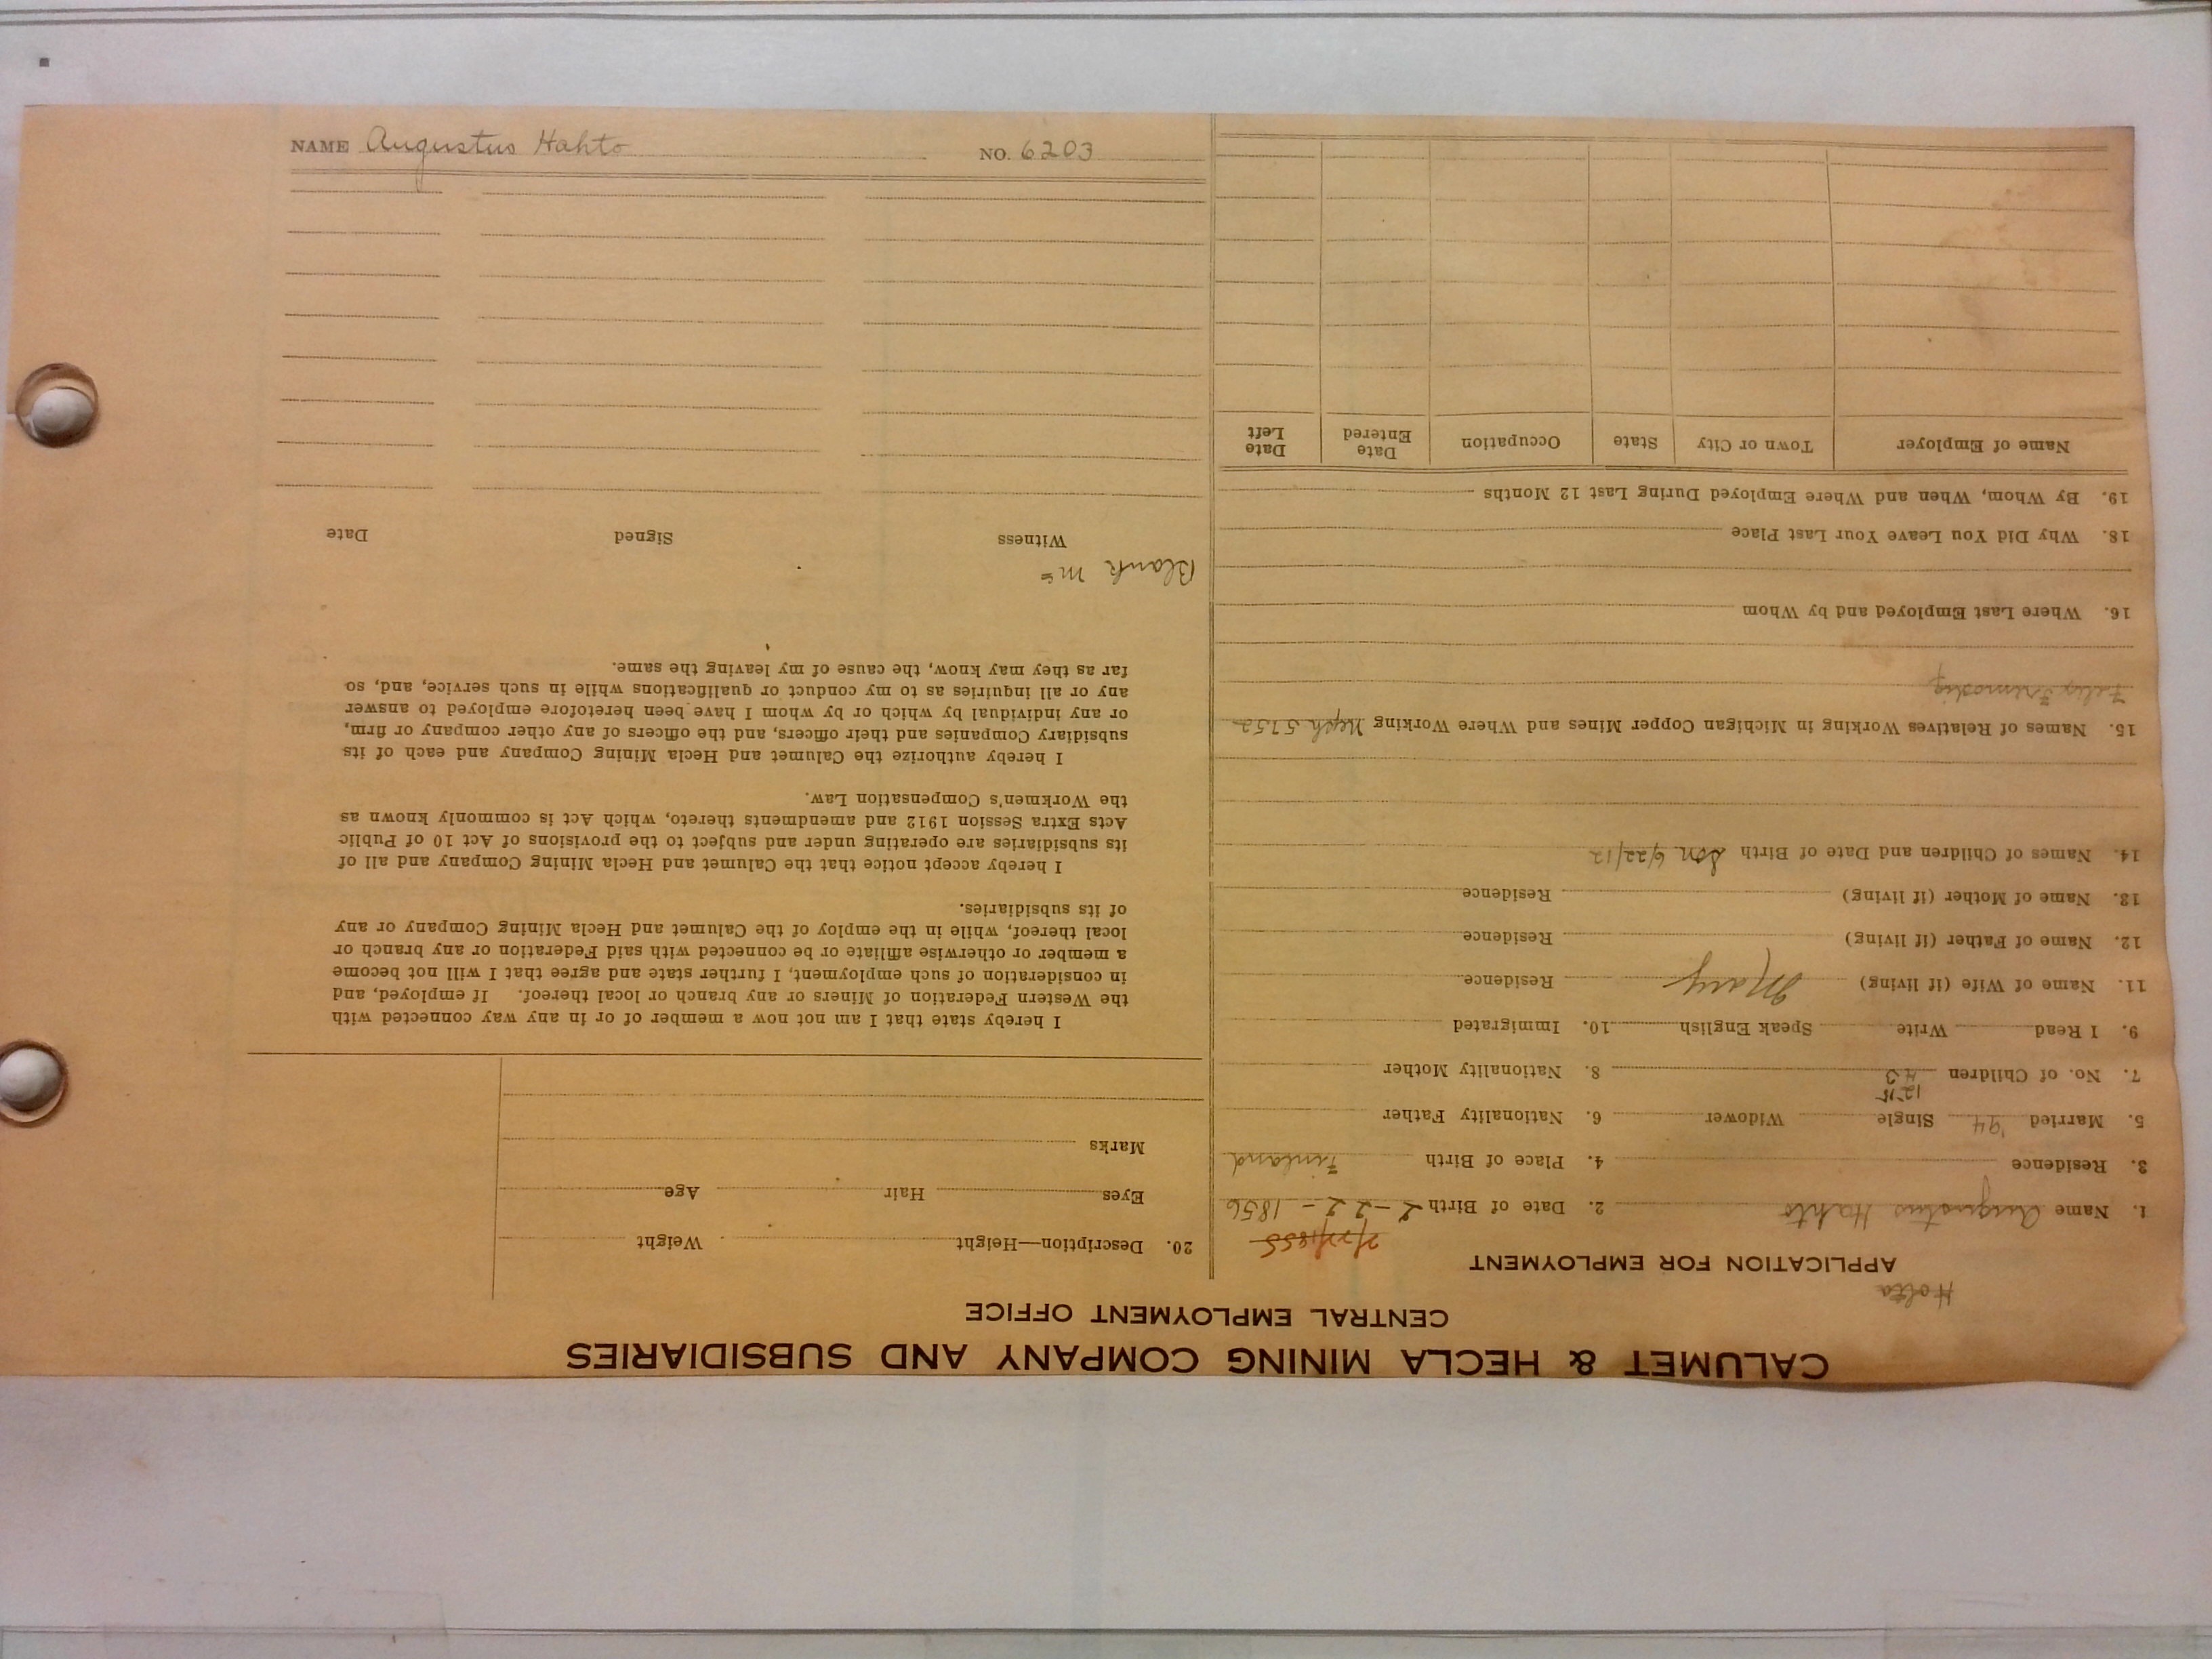 NAME Augustus Hahto NO. 6203
CALUMET & HECLA MINING COMPANY AND SUBSIDIARIES
CENTRAL EMPLOYMENT OFFICE
Holta
APPLICATION FOR EMPLOYMENT
2/22/1855
1. Name Augustus Hahto 2. Date of Birth 2-22-1856
3. Residence 4. Place of Birth Finland
5. Married '94 Single Widower 6. Nationality Father
12 15
7. No. of Children 43 8. Nationality Mother
9. I Read Write Speak English 10. Immigrated
11. Name of Wife (if living) Mary Residence
12. Name of Father (if living) Residence
13. Name of Mother (if living) Residence
14. Names of Children and Date of Birth Son 6/22/12
15. Names of Relatives Working in Michigan Copper Mines and Where Working Neph 5752
16. Where Last Employed and by Whom
18. Why Did You Leave Your Last Place
19. By Whom, When and Where Employed During Last 12 Months
Name of Employer Town or City State Occupation Date Entered Date Left
20. Description—Height Weight
Eyes Hair Age
Marks
I hereby state that I am not now a member of or in any way connected with
the Western Federation of Miners or any branch or local thereof. If employed, and
in consideration of such employment, I further state and agree that I will not become
a member or otherwise affiliate or be connected with said Federation or any branch or
local thereof, while in the employ of the Calumet and Hecla Mining Company or any
of its subsidiaries.
I hereby accept notice that the Calumet and Hecla Mining Company and all of
its subsidiaries are operating under and subject to the provisions of Act 10 of Public
Acts Extra Session 1912 and amendments thereto, which Act is commonly known as
the Workmen's Compensation Law.
I hereby authorize the Calumet and Hecla Mining Company and each of its
subsidiary Companies and their officers, and the officers of any other company or firm,
or any individual by which or by whom I have been heretofore employed to answer
any or all inquiries as to my conduct or qualifications while in such service, and, so
far as they may know, the cause of my leaving the same.
Blank
Witness Signed Date